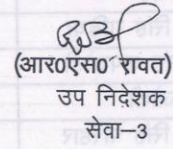 (आर०एस० रावत)
उप निदेशक
सेवा–3